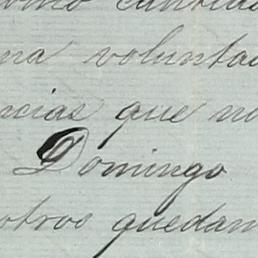 como cantida
na voluntad
ncias que no
Domingo
otros quedam